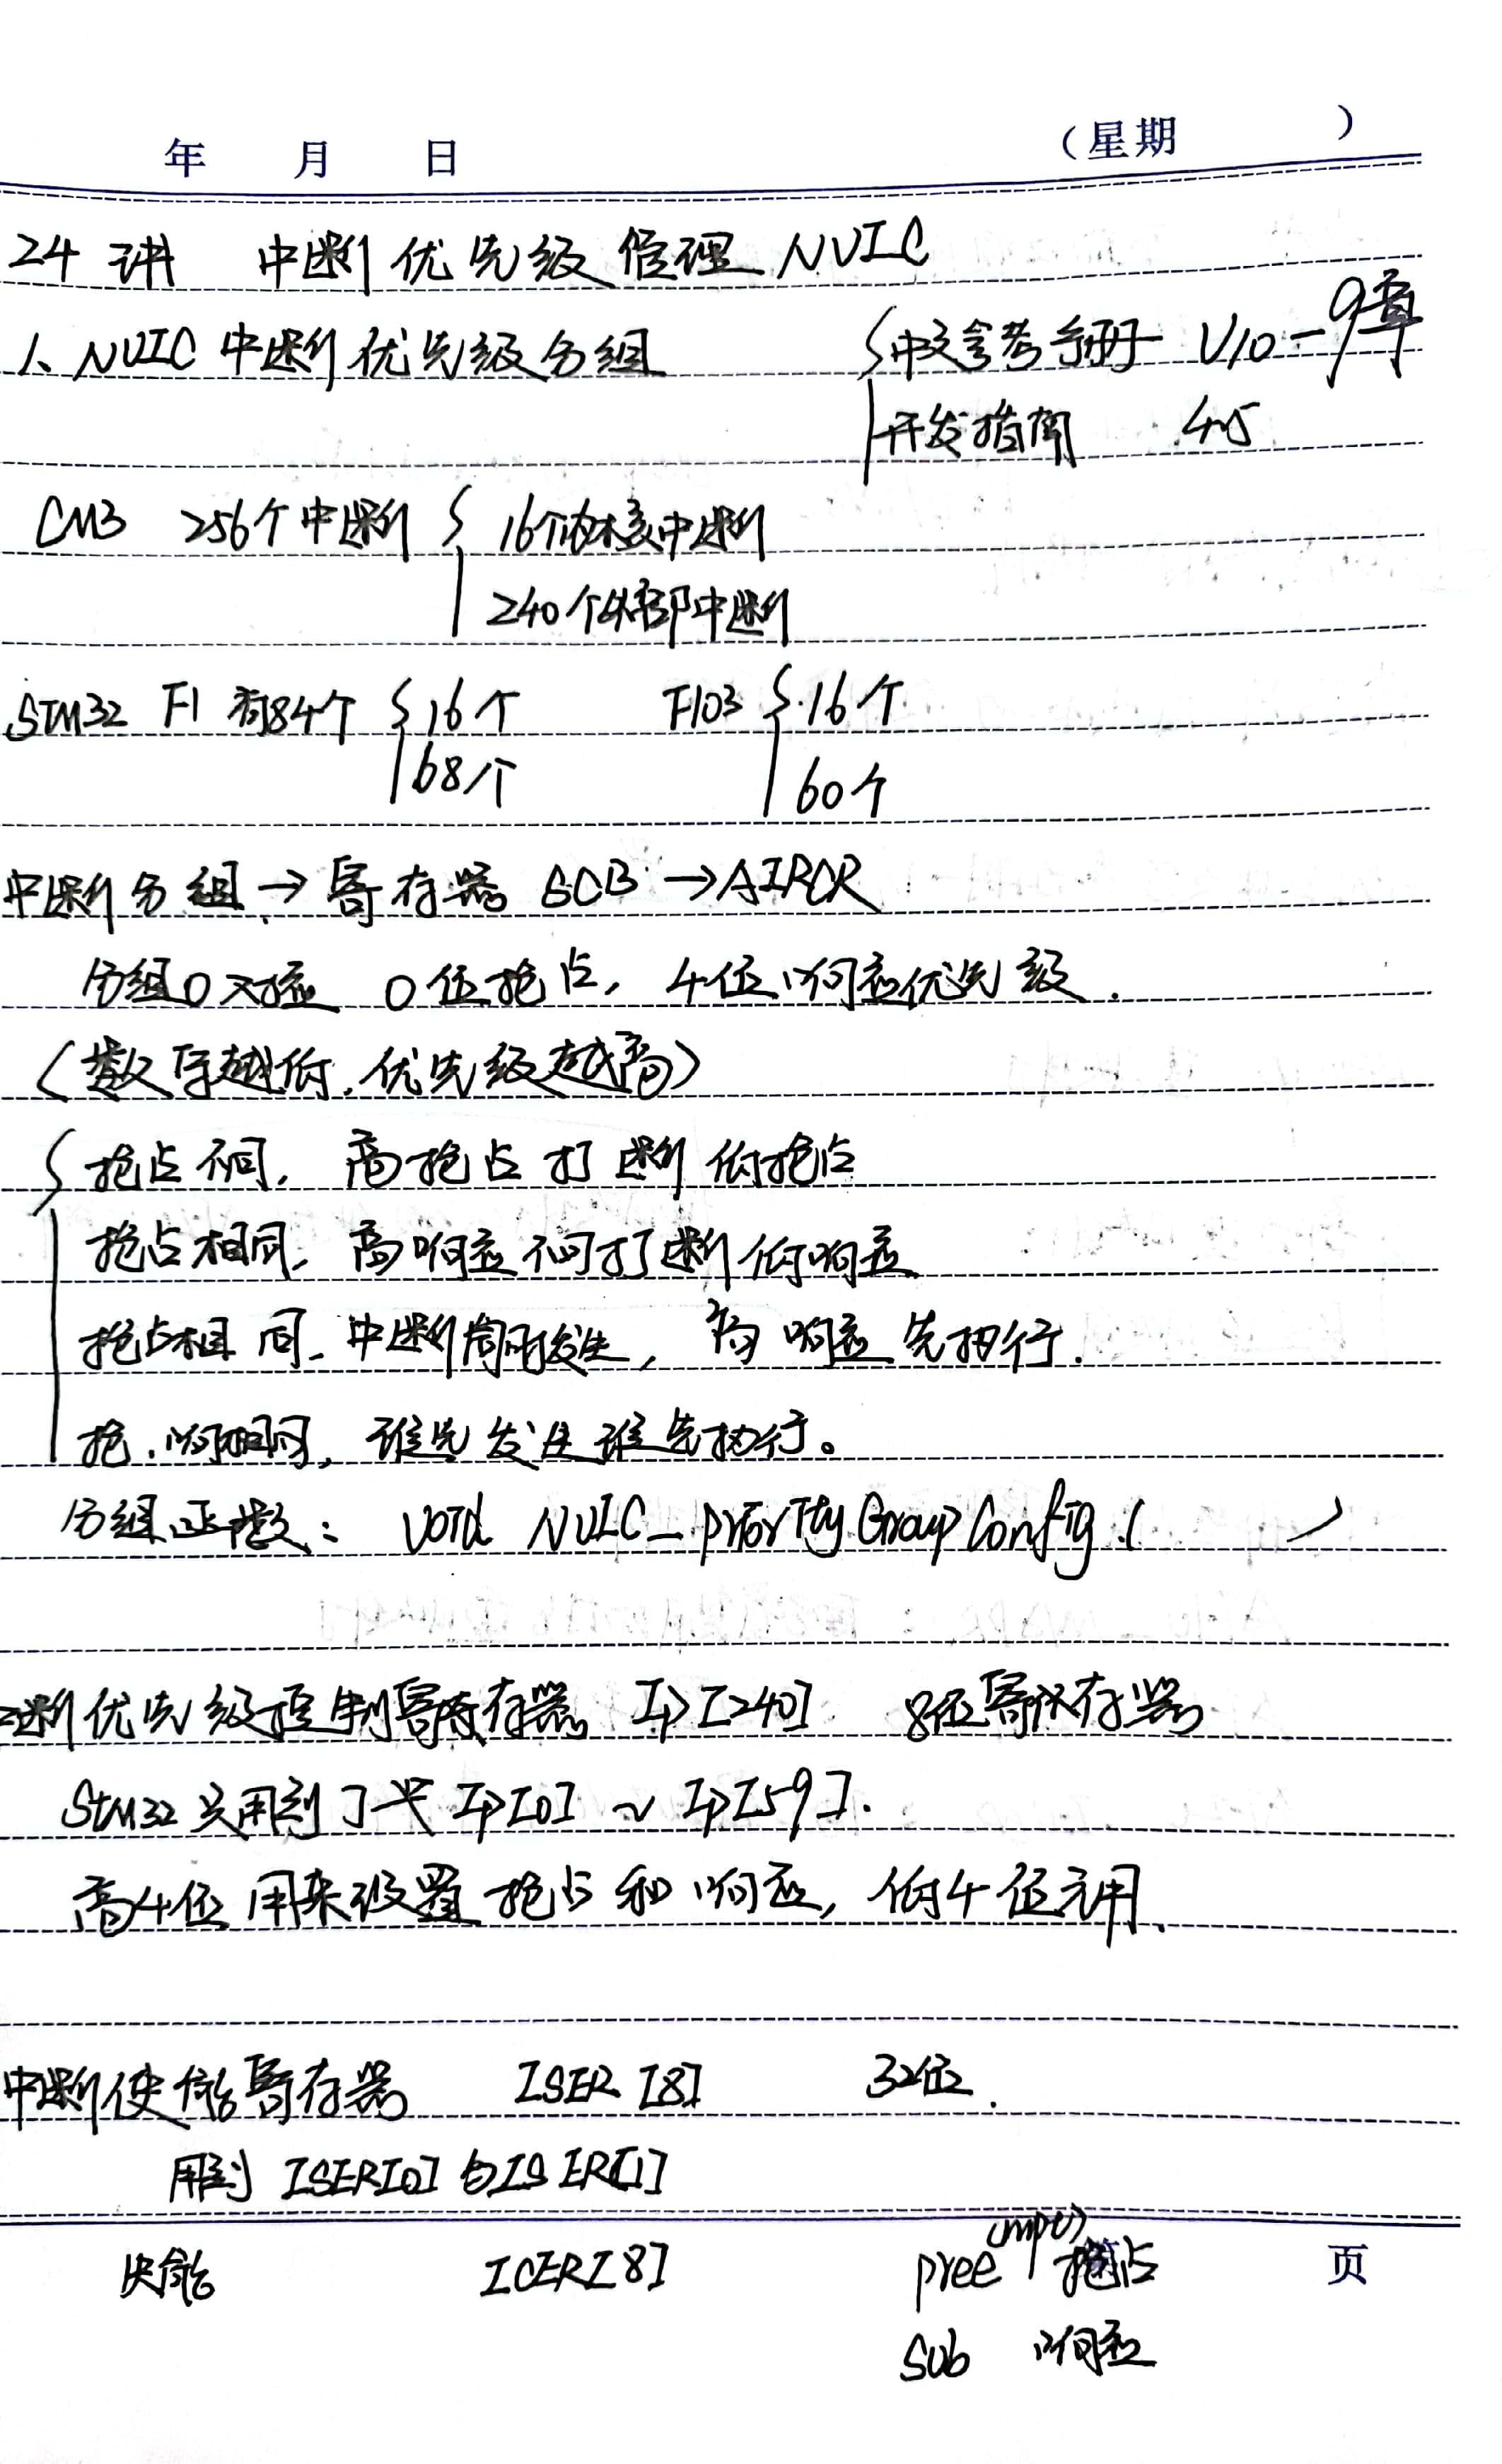 年 月 日 （星期 ）
24讲 中断优先级管理 NVIC
1、NVIC中断优先级分组 { 中文参考手册 V10-9章
开发指南 4.5
CM3 256个中断 { 16个内核中断
240个外部中断
STM32 F1 有84个 { 16个 F103 { 16个
68个 60个
中断分组→寄存器 SCB→AIRCR
分组0对应 0位抢占，4位响应优先级.
（数字越低，优先级越高）
{ 抢占不同，高抢占打断低抢占
抢占相同，高响应不可打断低响应
抢占相同，中断同时发生，高响应先执行.
抢.响相同，谁先发生谁先执行。
分组函数： void NVIC_priorityGroupConfig ( )
断优先级控制寄存器 IP[240] 8位寄存器
STM32只用到了 IP[0] ~ IP[59].
高4位用来设置抢占和响应，低4位无用.
中断使能寄存器 ISER[8] 32位.
用到 ISER[0] 与 ISER[1]
失能 ICER[8] pree(mpt) 抢占 页
sub 响应